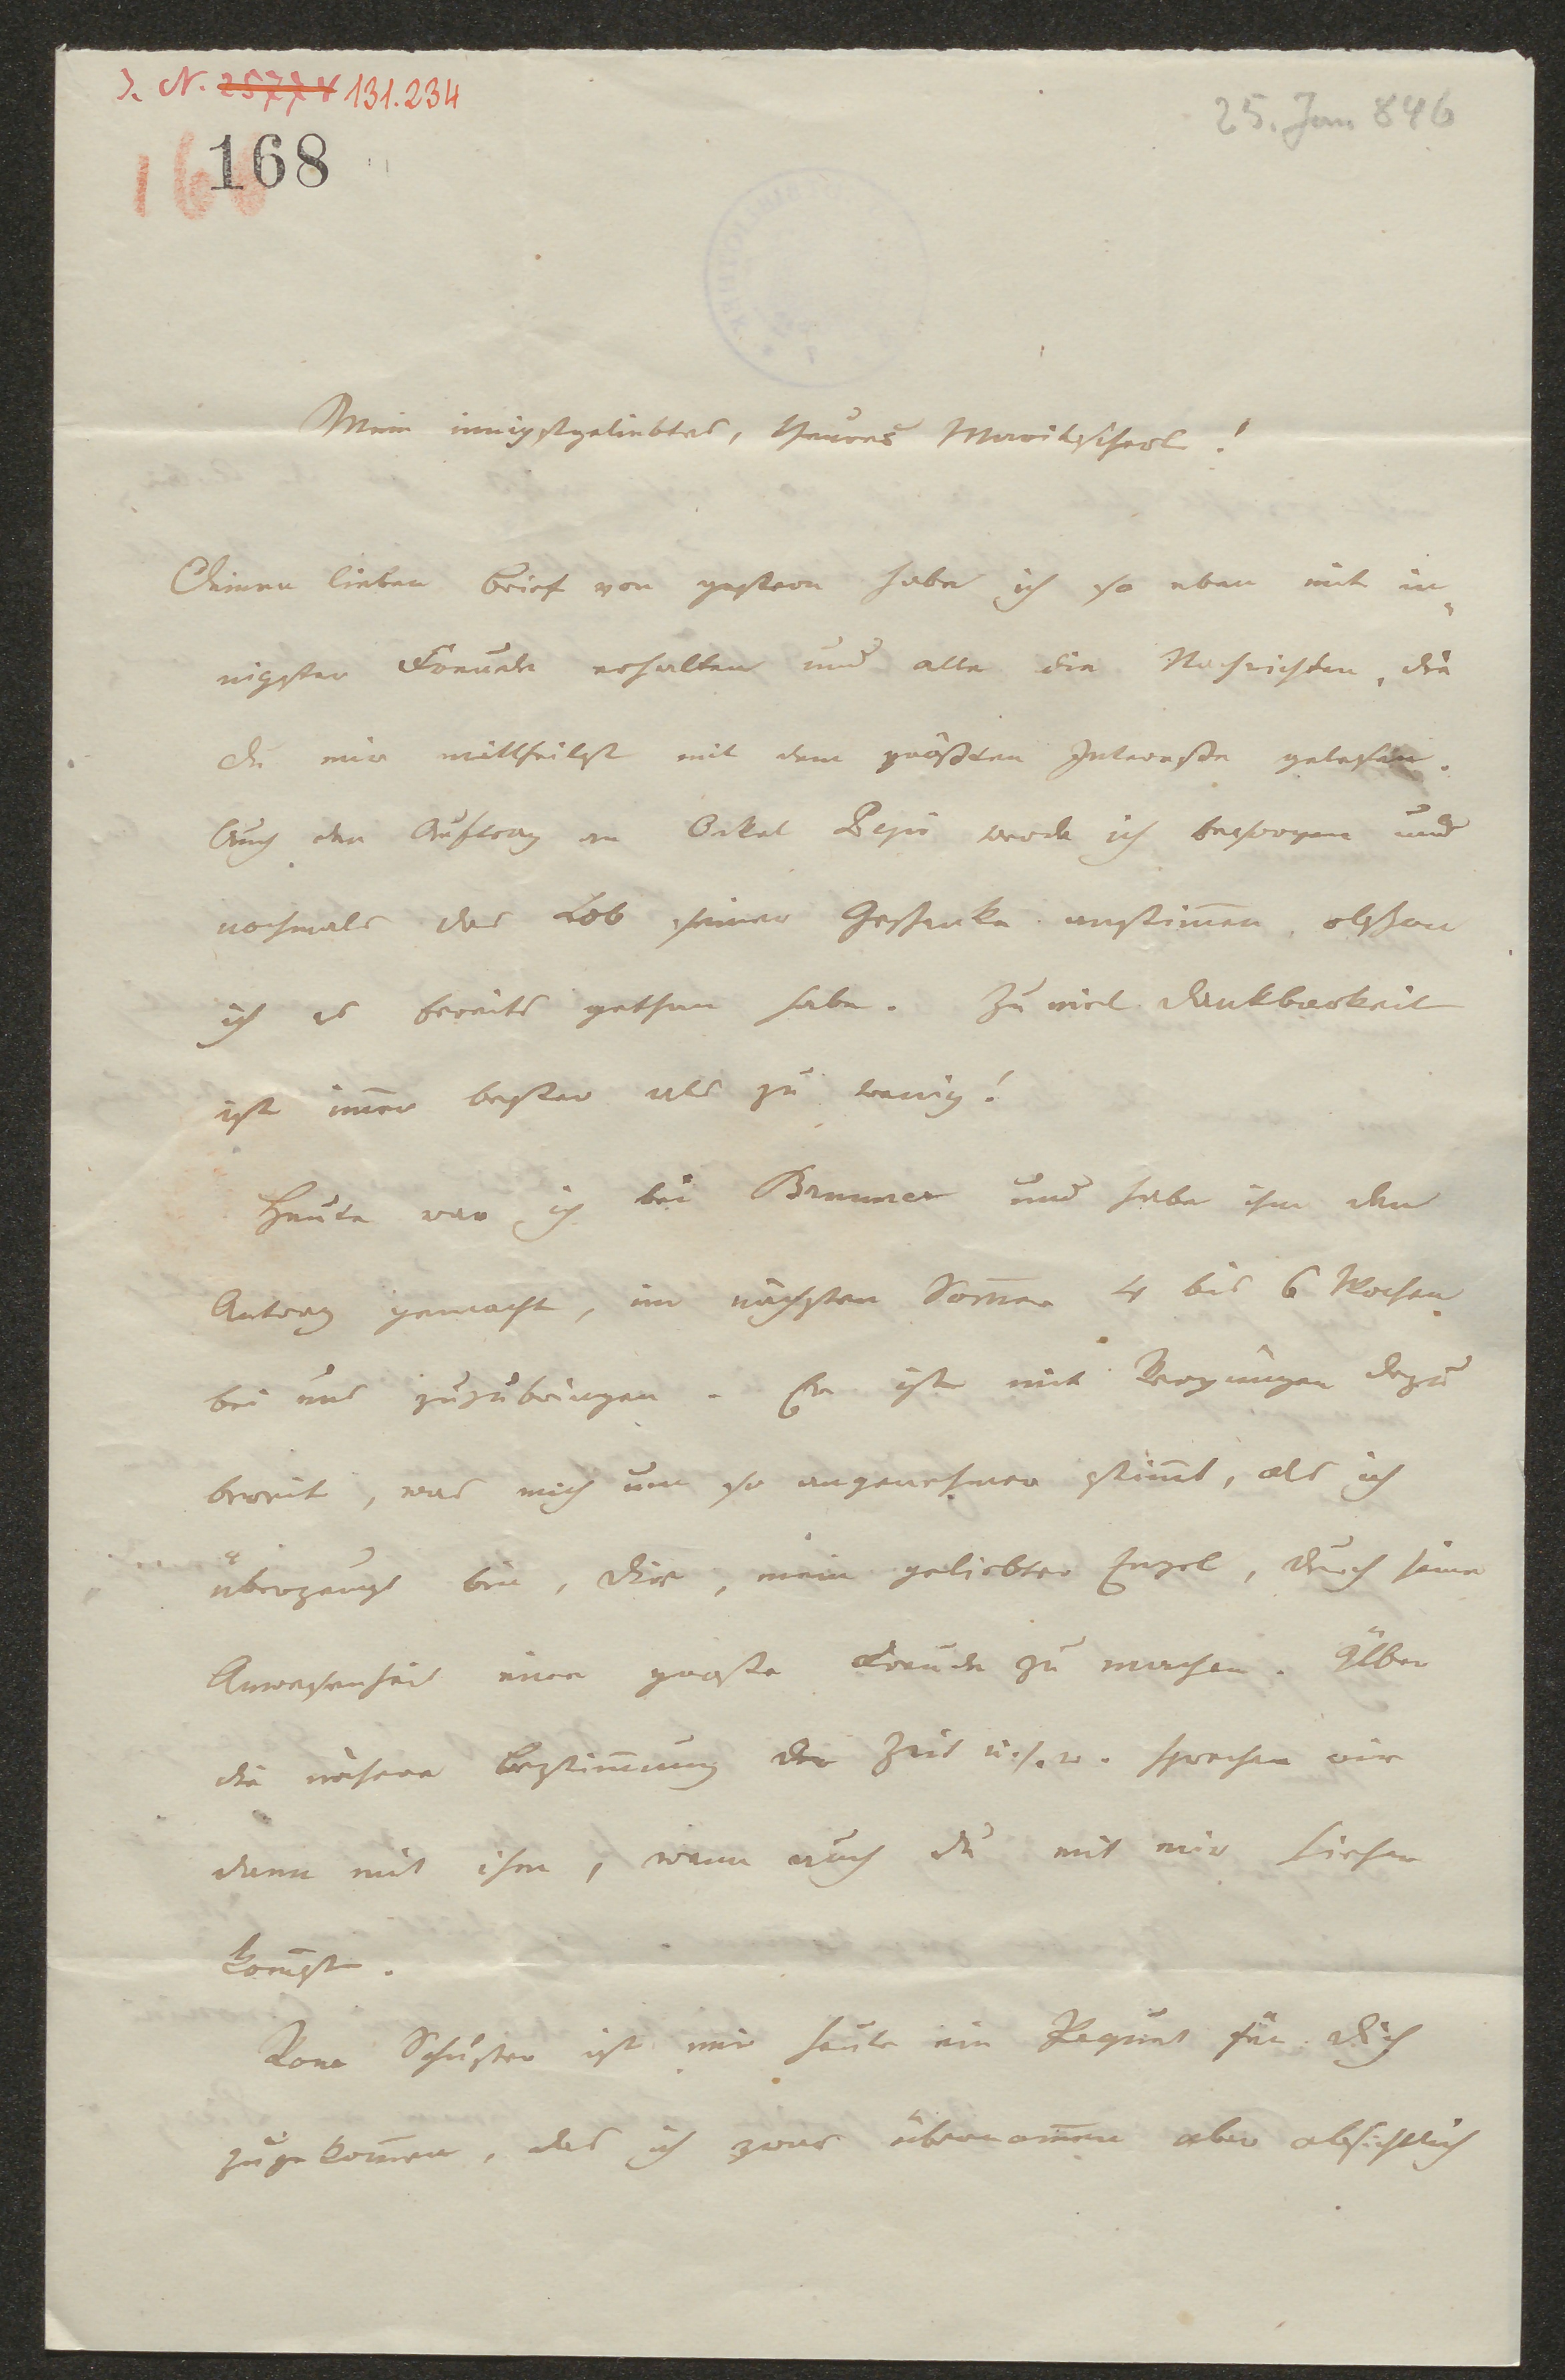 I. N. 25778 131.234
25. Jan 846
168
168
Mein innigstgeliebtes, theures Mariktscherl!
Deinen lieben Brief von gestern habe ich so eben mit in„
nigster Freude erhalten und alle die Nachrichten, die
du mir mittheilst mit dem größten Interesse gelesen.
Auch den Auftrag an Onkel Pepi werde ich besorgen und
nochmals das Lob seiner Geschenke anstim̄en, obschon
ich es bereits gethan habe. Zu viel Dankbarkeit
ist im̄er besser als zu wenig!
Heute war ich bei Brunner und habe ihm den
Antrag gemacht, im nächsten Som̄er 4 bis 6 Wochen
bei uns zuzubringen. Er ist mit Vergnügen dazu
bereit, was mich um so angenehmer stim̄t, als ich
überzeugt bin, dir, mein geliebter Engel, durch seine
Anwesenheit eine große Freude zu machen. Über
die nähere Bestim̄mung der Zeit u.s.w. sprechen wir
dann mit ihm, wenn auch du mit mir hieher
kom̄st.
Vom Schuster ist mir heute ein Paquet für dich
zugekom̄en, das ich zwar übernom̄en aber absichtlich